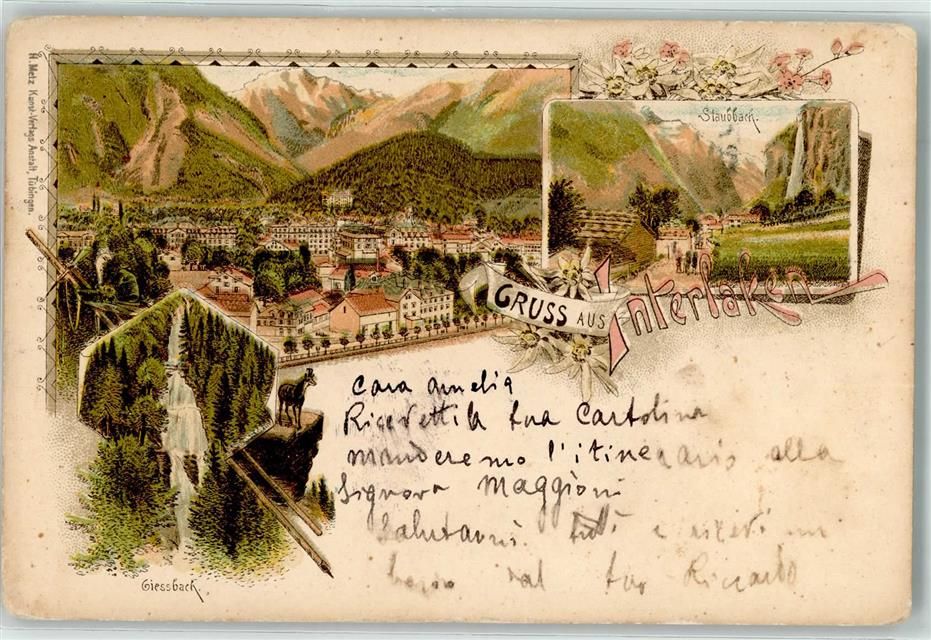 H. Metz Kunst-Verlags Anstalt, Tübingen.
Staubbach.
GRUSS AUS Interlaken
Giessbach.
Cara Amelia
Ricevetti la tua Cartolina
manderemo l'itinerario alla
Signora Maggioni
Salutami tutti e ricevi un
bacio dal tuo Riccardo